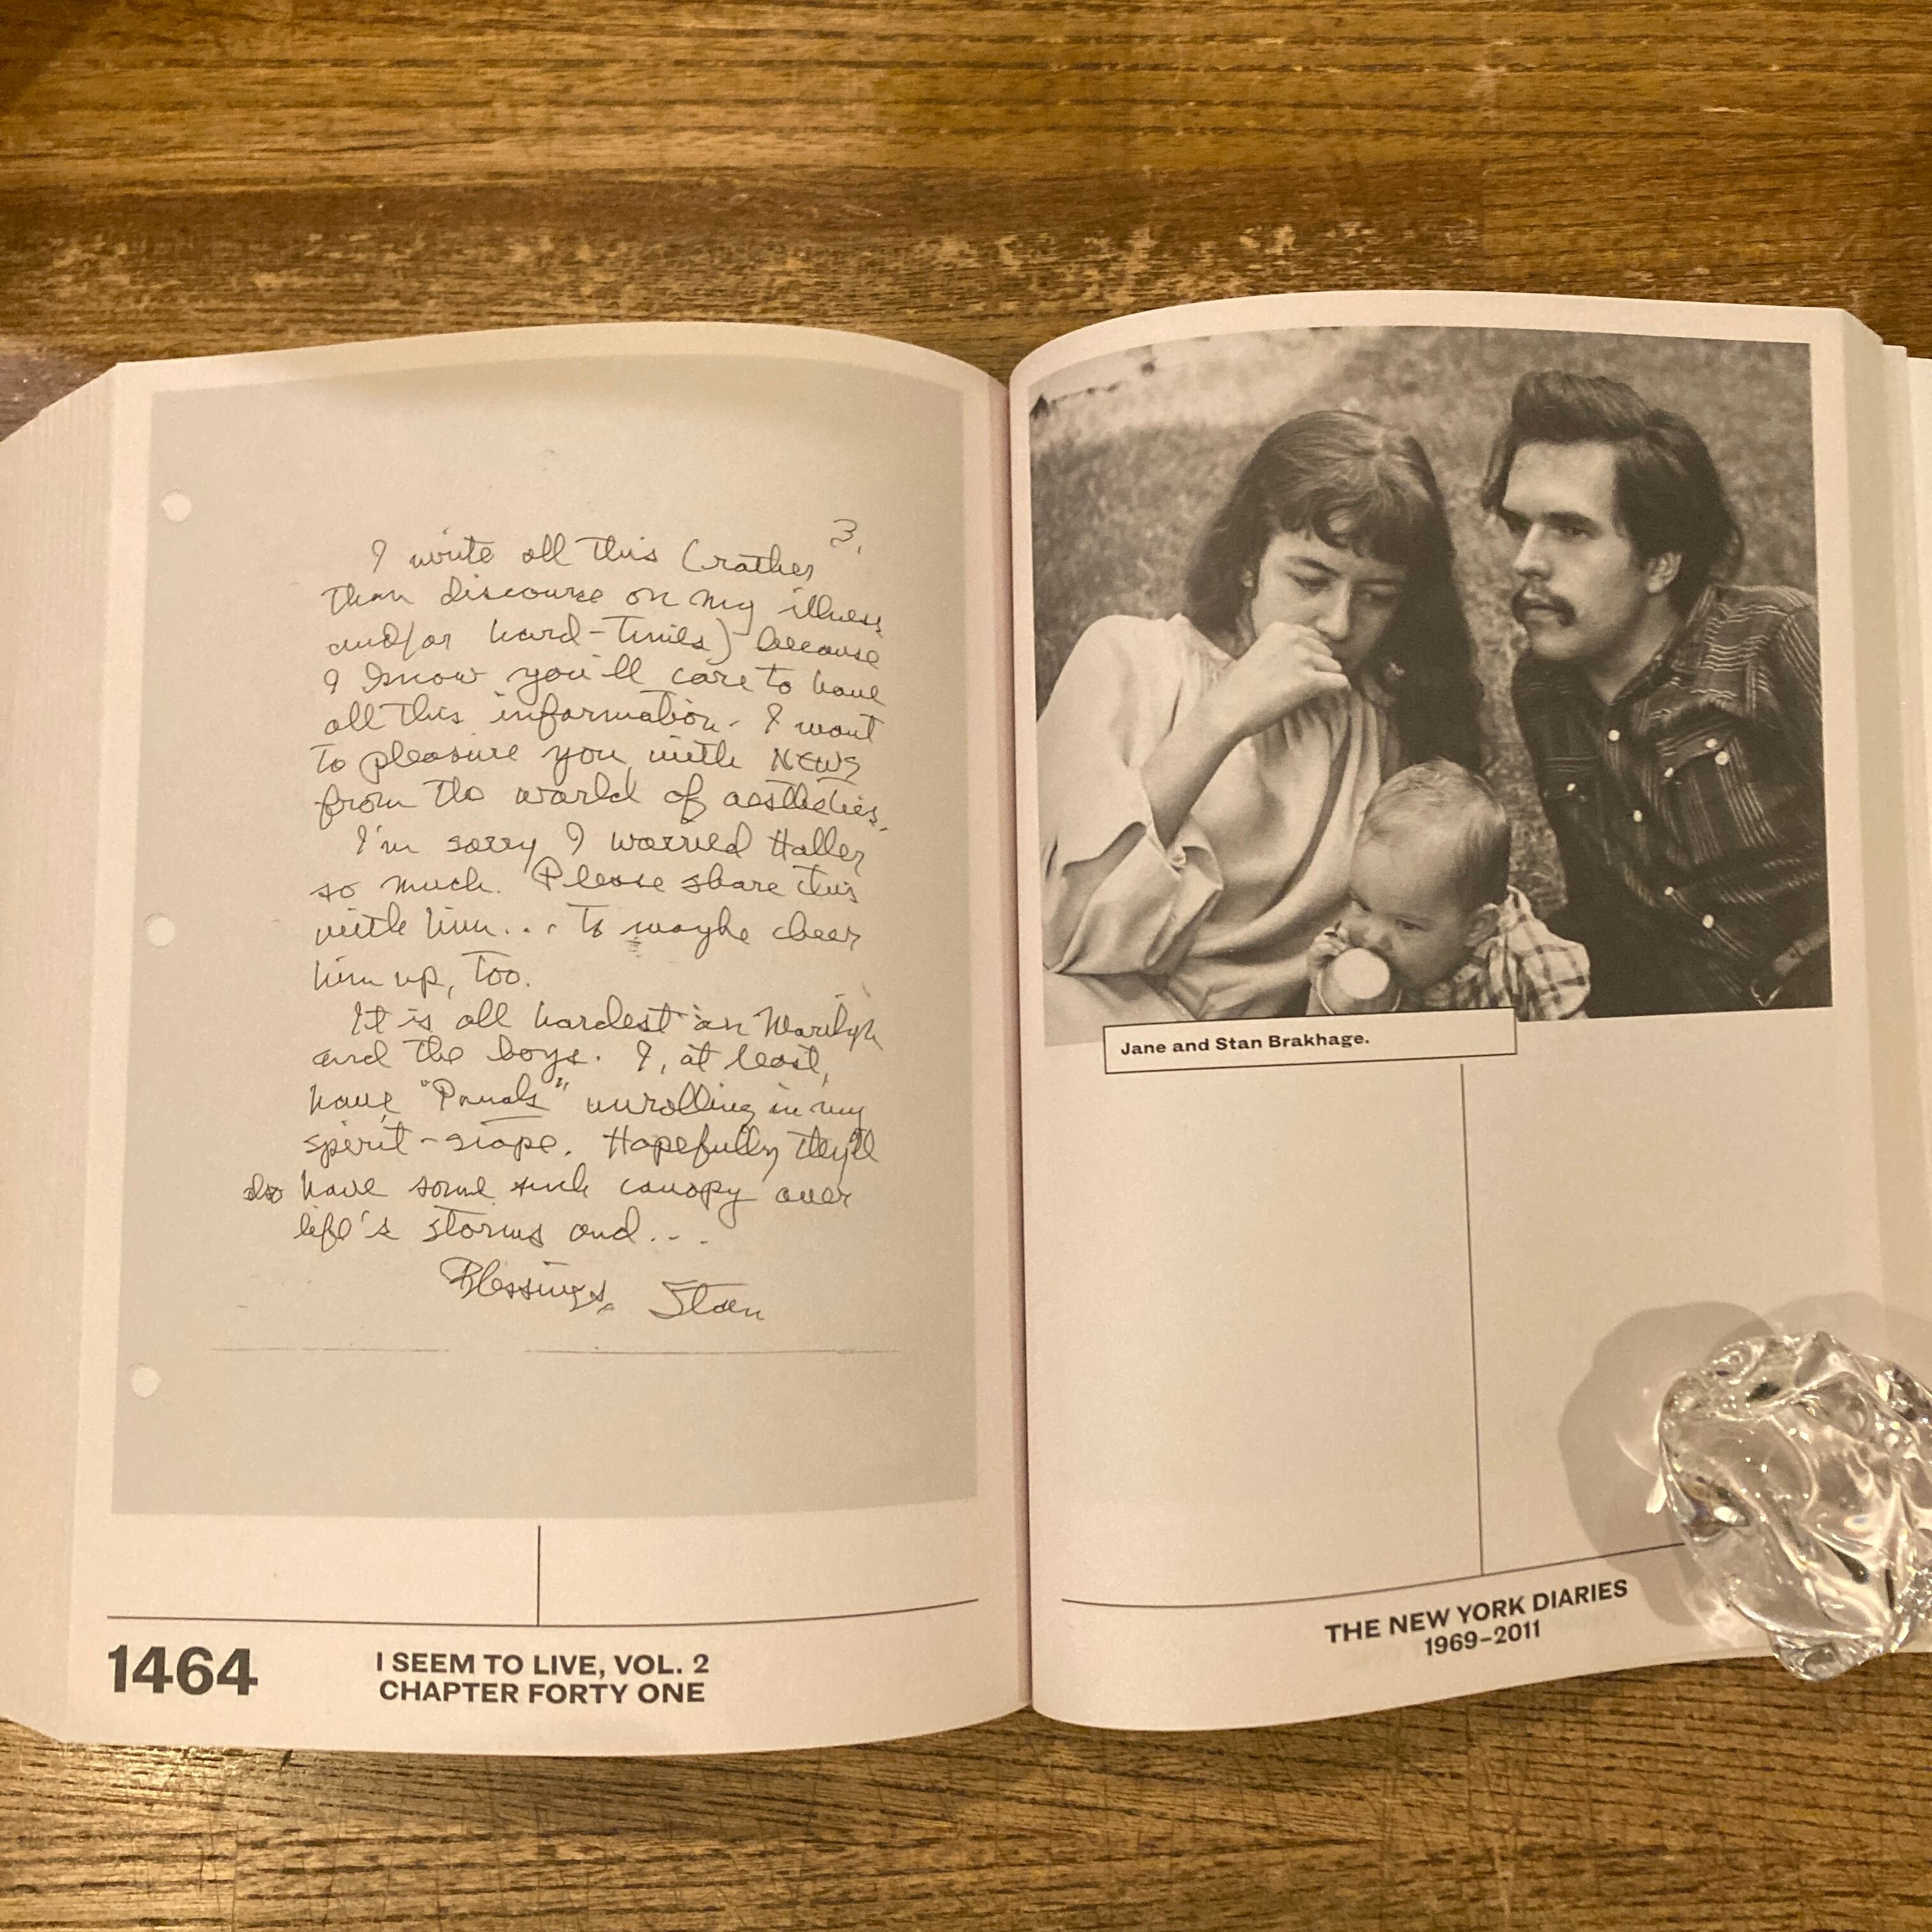 3.
I write all this (rather
than discourse on my illness
and/or hard-times) because
I know you'll care to have
all this information. I want
to pleasure you with NEWS
from the world of aesthetics.
I'm sorry I worried Haller
so much. Please share this
with him... to maybe cheer
him up, too.
It is all hardest on Marilyn
and the boys. I, at least,
have "Panels" unrolling in my
spirit-scape. Hopefully they'll
also have some such canopy over
life's storms and...
Blessings, Stan
1464
I SEEM TO LIVE, VOL. 2
CHAPTER FORTY ONE
Jane and Stan Brakhage.
THE NEW YORK DIARIES
1969–2011